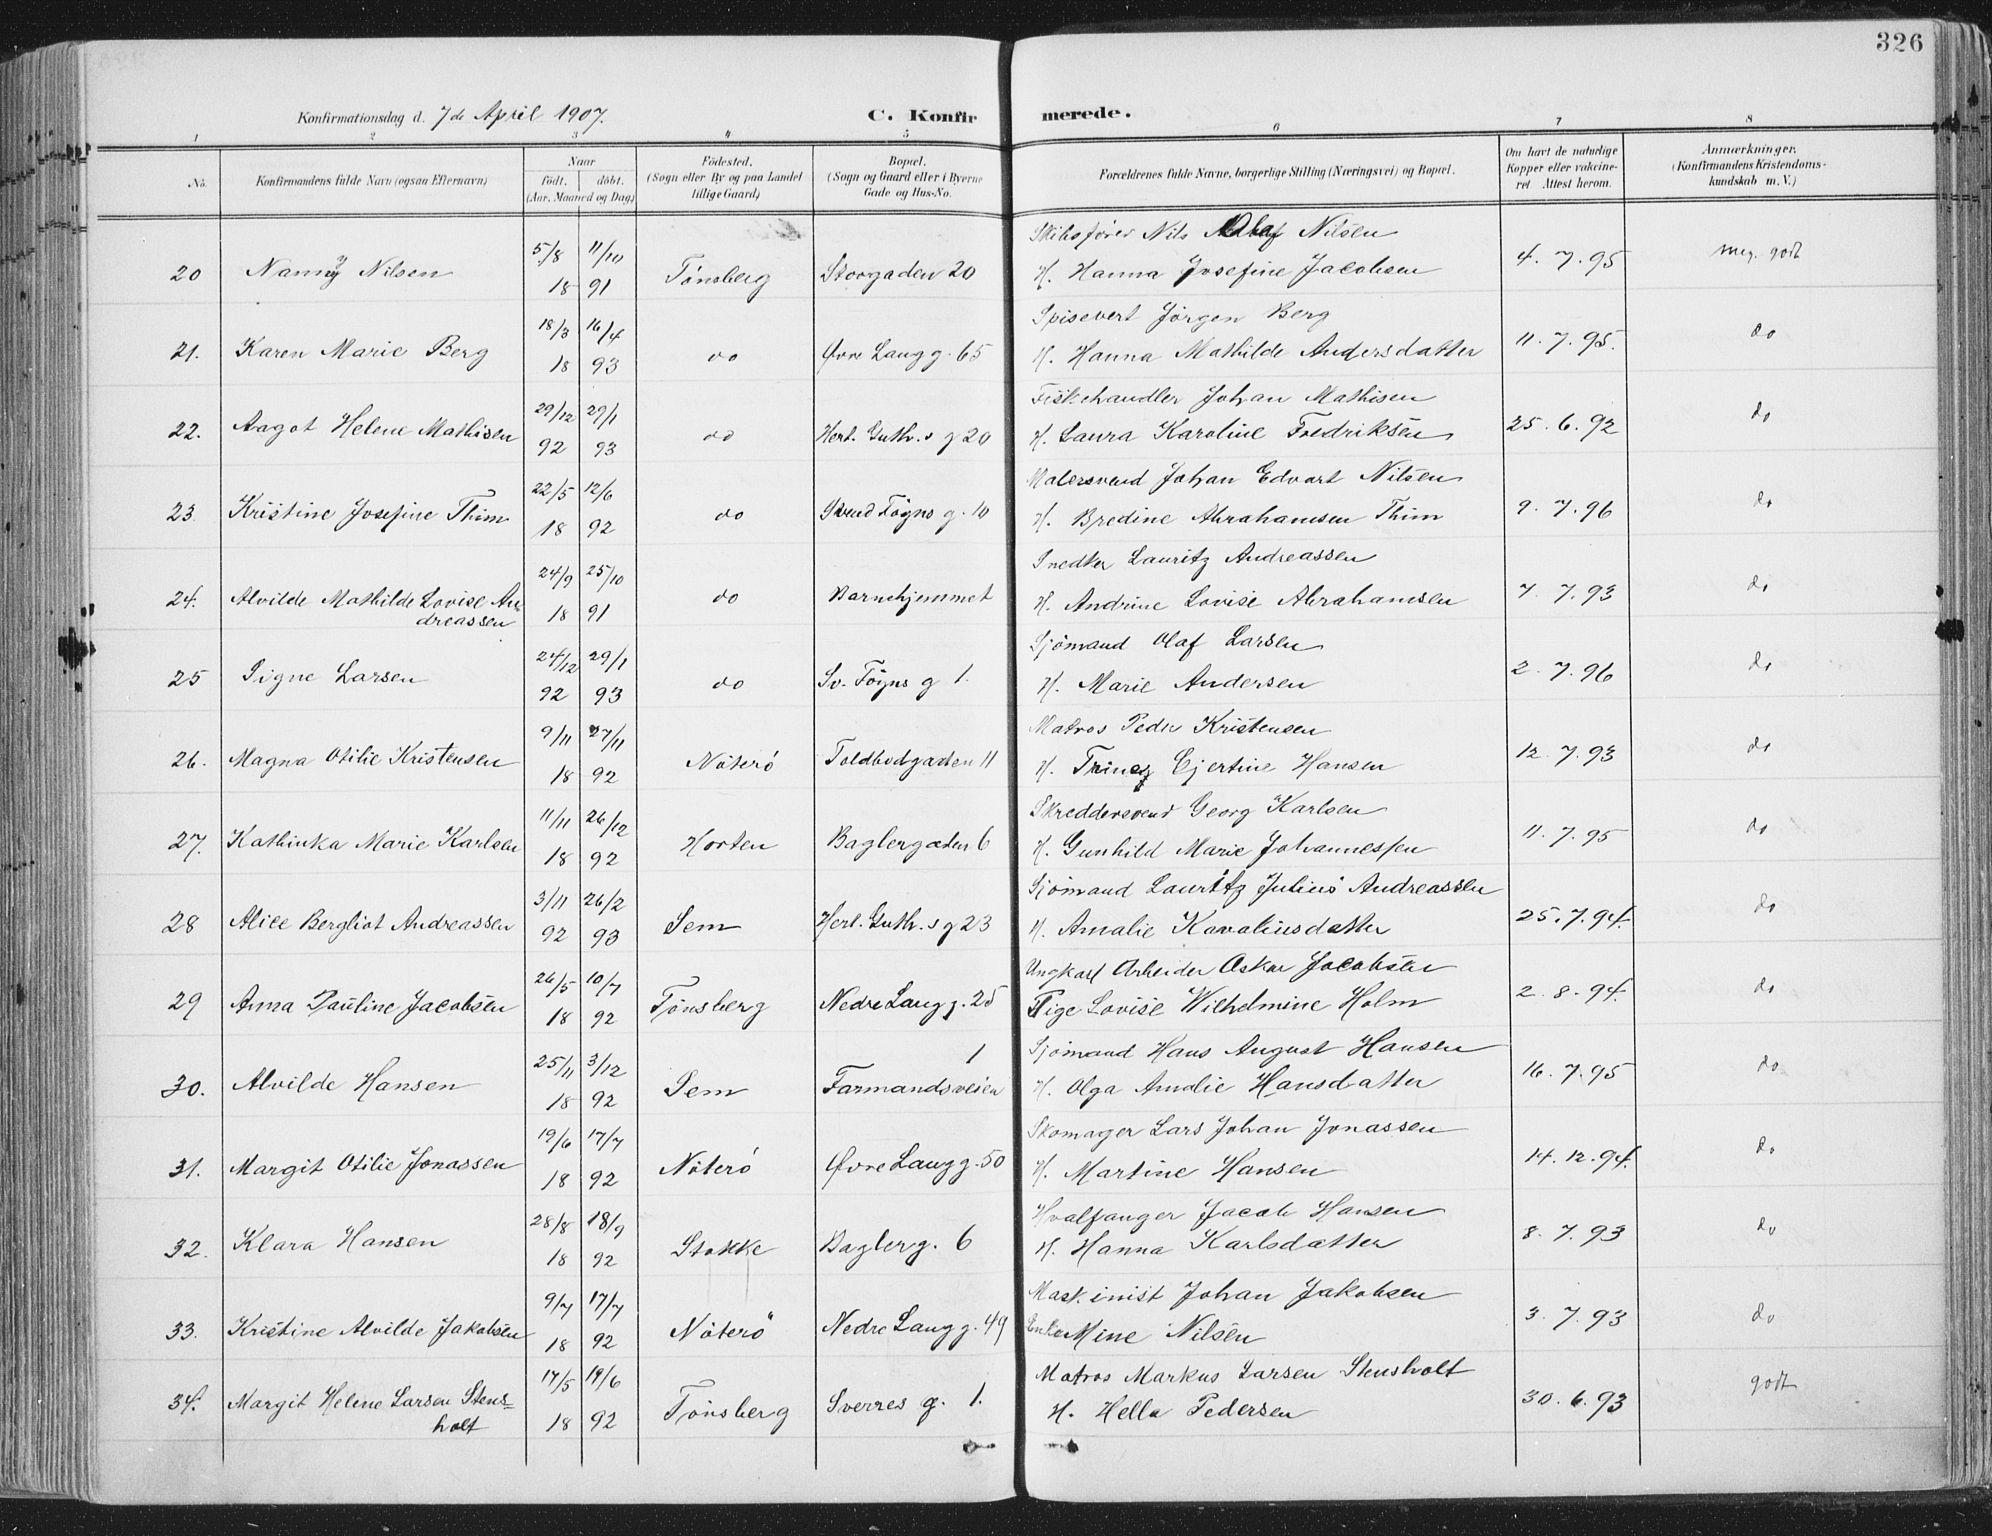 326
Konfirmationsdag d. 7de April 1907.
C. Konfirmerede.
1 2 3 4 5 6 7 8
No.
Konfirmandens fulde Navn (ogsaa Efternavn)
Naar
født. døbt.
(Aar, Maaned og Dag)
Fødested.
(Sogn eller By og paa Landet
tillige Gaard)
Bopæl.
(Sogn og Gaard eller i Byerne
Gade og Hus-No.
Forældrenes fulde Navne, borgerlige Stilling (Næringsvei) og Bopæl.
Om havt de naturlige
Kopper eller vakcine-
ret Attest herom.
Anmærkninger.
(Konfirmandens Kristendoms-
kundskab m. V.)
5/8 11/10 Skibsfører Nils Olaf Nilsen
20 Nanny Nilsen 18 91 Tønsberg Storgaden 20 H. Hanna Josefine Jacobsen 4. 7. 95 meg. godt
18/3 16/4 Spisevert Jørgen Berg
21. Karen Marie Berg 18 93 do Øvre Langg. 65 H. Hanna Mathilde Andersdatter 11. 7. 95. do
29/12 29/1 Fiskehandler Johan Mathisen
22. Aagot Helene Mathisen 92 93 do Hert. Guth.s g 20 H. Laura Karoline Fredriksen 25. 6. 92 do
22/5 12/6 Malersvend Johan Edvart Nilsen
23. Kristine Josefine Thim 18 92 do Svend Føyns g. 10 H. Bredine Abrahamsen Thim 9. 7. 96 do
24/9 25/10 Snedker Lauritz Andreassen
24. Alvilde Mathilde Lovise An- 18 91 do Barnehjemmet H. Andrine Lovise Abrahamsen 7. 7. 93 do
dreassen
24/12 29/1 Sjömand Olaf Larsen
25 Signe Larsen 92 93 do Sv. Føyns g 1. H. Marie Andersen 2. 7. 96 do
9/11 27/11 Matros Peder Kristensen
26. Magna Otilie Kristensen 18 92 Nöterö Toldbodgaden 11 H. Trine Gjertine Hansen 12. 7. 93 do
11/11 26/12 Skreddersvend Georg Karlsen
27. Kathinka Marie Karlsen 18 92 Horten Baglergaden 6 H. Gunhild Marie Johannessen 11. 7. 95 do
3/11 26/2 Sjömand Lauritz Julius Andreassen
28 Alice Bergliot Andreassen 92 93 Sem Hert. Guth.s g 23 H. Amalie Karoliusdatter 25. 7. 94. do
26/5 10/7 Ungkarl Arbeider Oskar Jacobsen
29 Anna Pauline Jacobsen 18 92 Tønsberg Nedre Langg. 25 Pige Lovise Wilhelmine Holm 2. 8. 94. do
25/11 3/12 1 Sjömand Hans August Hansen
30. Alvilde Hansen 18 92 Sem Farmandsveien H. Olga Amalie Hansdatter 16. 7. 95 do
19/6 17/7 Skomager Lars Johan Jonassen
31. Margit Otilie Jonassen 18 92 Nöterö Øvre Langg. 50 H. Martine Hansen 14. 12. 94. do
28/8 18/9 Hvalfanger Jacob Hansen
32. Klara Hansen 18 92 Stokke Baglerg. 6 H. Hanna Karlsdatter 8. 7. 93 do
9/7 17/7 Maskinist Johan Jakobsen
33. Kristine Alvilde Jakobsen 18 92 Nöterö Nedre Langg. 49 Enke Mine Nilsen 3. 7. 93 do
17/5 19/6 Matros Markus Larsen Stensholt
34. Margit Helene Larsen Stens- 18 92 Tønsberg Sverres g. 1. H. Hella Pedersen 30. 6. 93 godt
holt